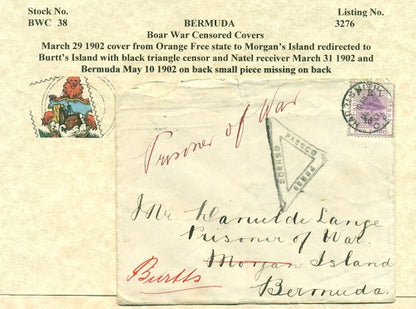 Stock No.
BERMUDA
Listing No.
BWC 38
Boar War Censored Covers
3276
March 29 1902 cover from Orange Free state to Morgan's Island redirected to
Burtt's Island with black triangle censor and Natel receiver March 31 1902 and
Bermuda May 10 1902 on back small piece missing on back
Prisoner of War
PASSED
PRESS
CENSOR
Mr. Daniel de Lange
Prisoner of War
Morgan Island
Burtts
Bermuda.